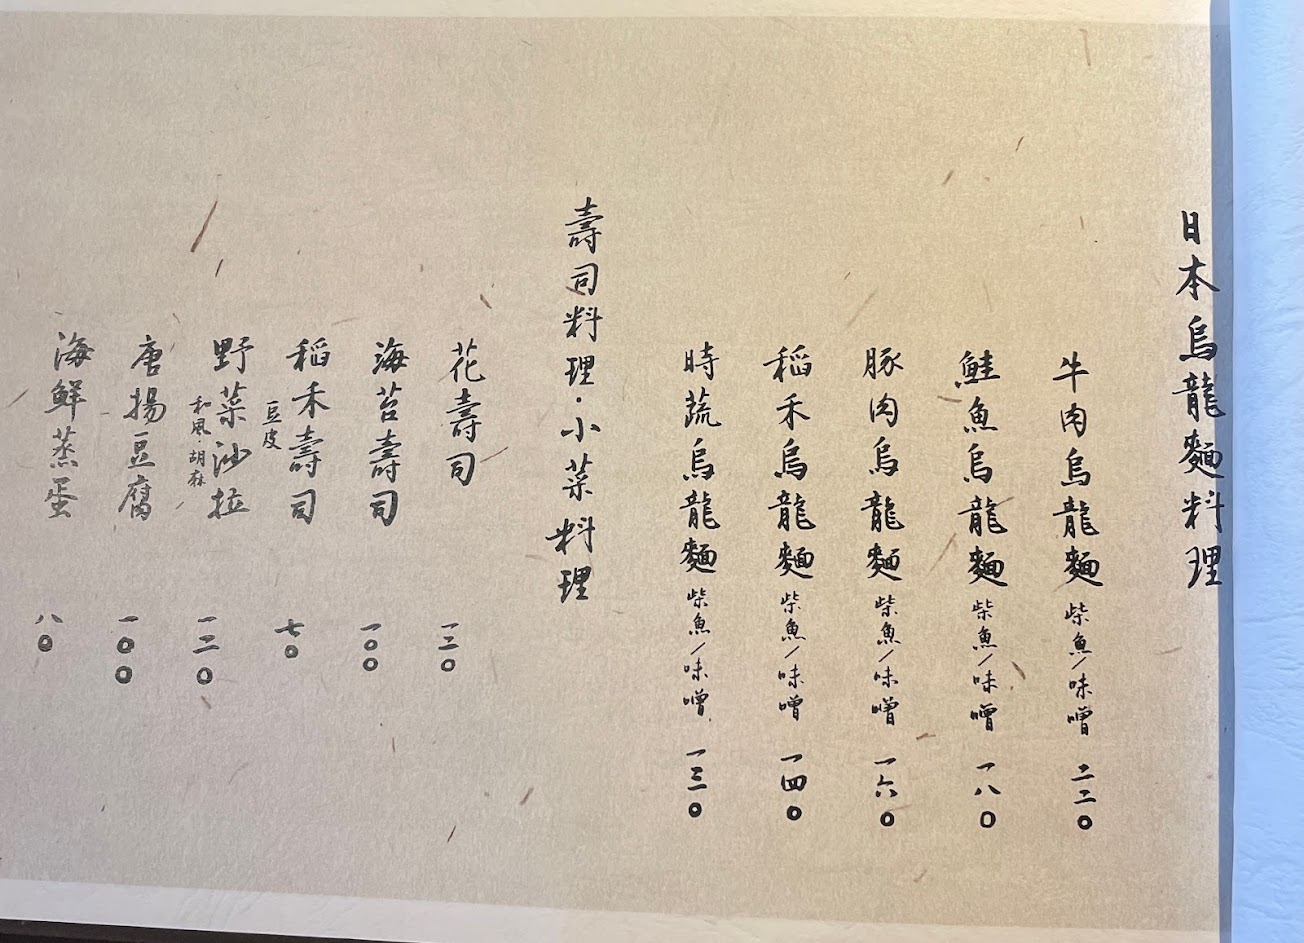 日本烏龍麵料理
牛肉烏龍麵 柴魚/味噌 二二〇
鮭魚烏龍麵 柴魚/味噌 一八〇
豚肉烏龍麵 柴魚/味噌 一六〇
稻禾烏龍麵 柴魚/味噌 一四〇
時蔬烏龍麵 柴魚/味噌 一三〇
壽司料理·小菜料理
花壽司 一二〇
海苔壽司 一〇〇
稻禾壽司 七〇
豆皮
野菜沙拉 一二〇
和風·胡麻
唐揚豆腐 一〇〇
海鮮蒸蛋 八〇